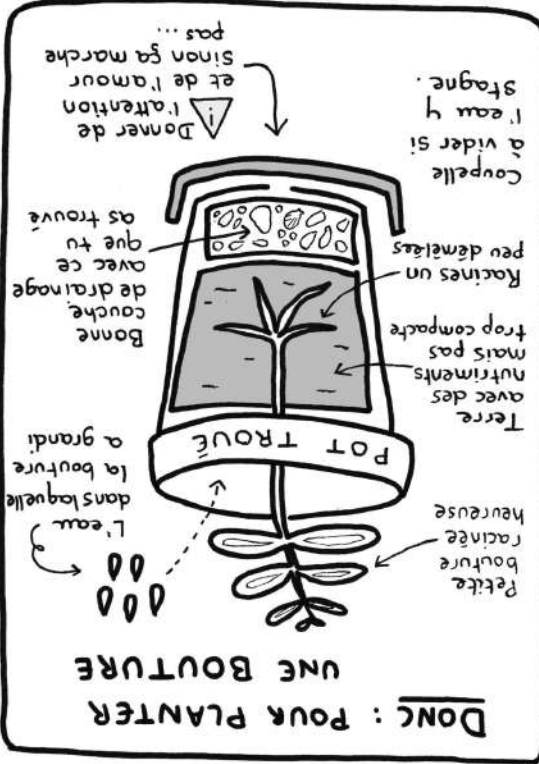 DONC : POUR PLANTER
UNE BOUTURE
Petite
bouture
racinée
heureuse
L'eau
dans laquelle
la bouture
a grandi
POT TROUÉ
Terre
avec des
nutriments
mais pas
trop compacte
Bonne
couche
de drainage
avec ce
que tu
as trouvé
Racines un
peu démêlées
Coupelle
à vider si
l'eau y
stagne.
!
Donner de
l'attention
et de l'amour
Sinon ça marche
pas ...